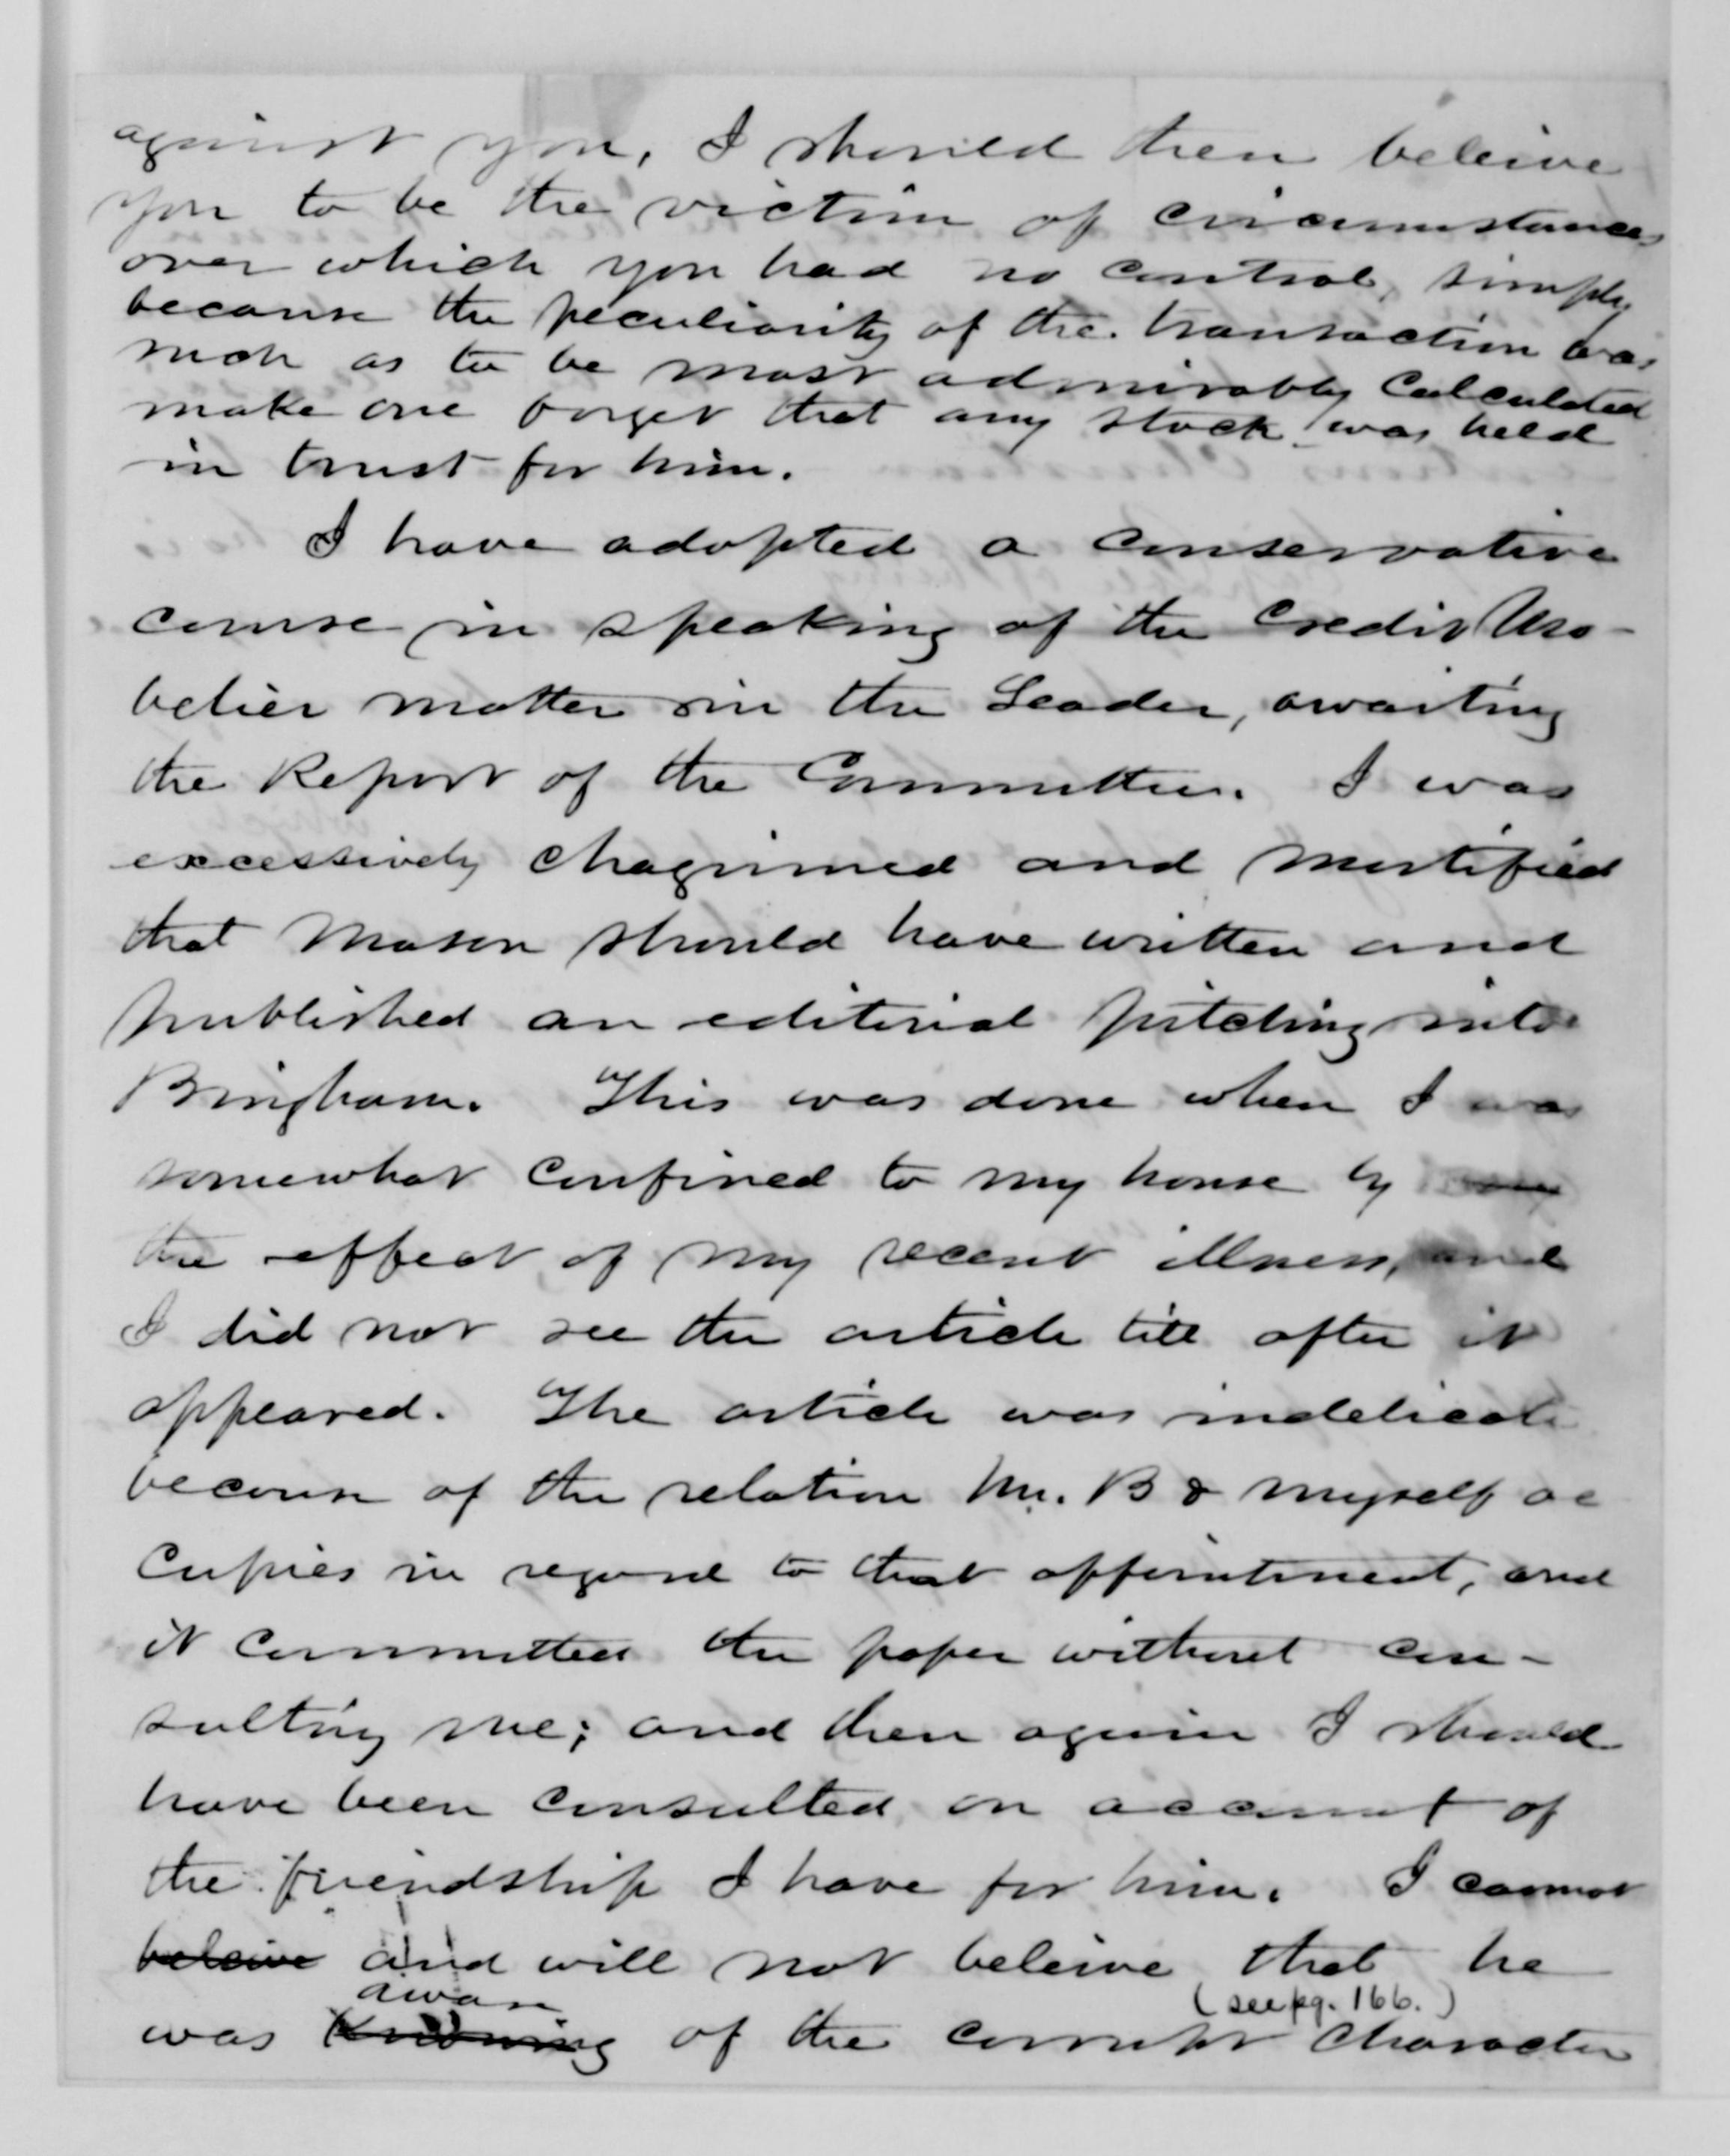 against you, I should then beleive
you to be the victim of circumstances
over which you had no control, simply
because the peculiarity of the transaction was
such as to be most admirably calculated
make one forget that any stock was held
in trust for him.
I have adopted a conservative
course in speaking of the Credit Mo-
belier matter in the Leader, awaiting
the Report of the Committee. I was
excessively chagrined and mortified
that Mason should have written and
published an editorial pitching into
Bingham. This was done when I was
somewhat confined to my house by
the effect of my recent illness, and
I did not see the article till after it
appeared. The article was indelicate
because of the relation Mr. B & myself oc
cupies in regard to that appointment, and
it committed the paper without con-
sulting me; and then again I should
have been consulted on account of
the friendship I have for him. I cannot
beleive and will not beleive that he
aware (see pg. 166.)
was knowing of the corrupt character